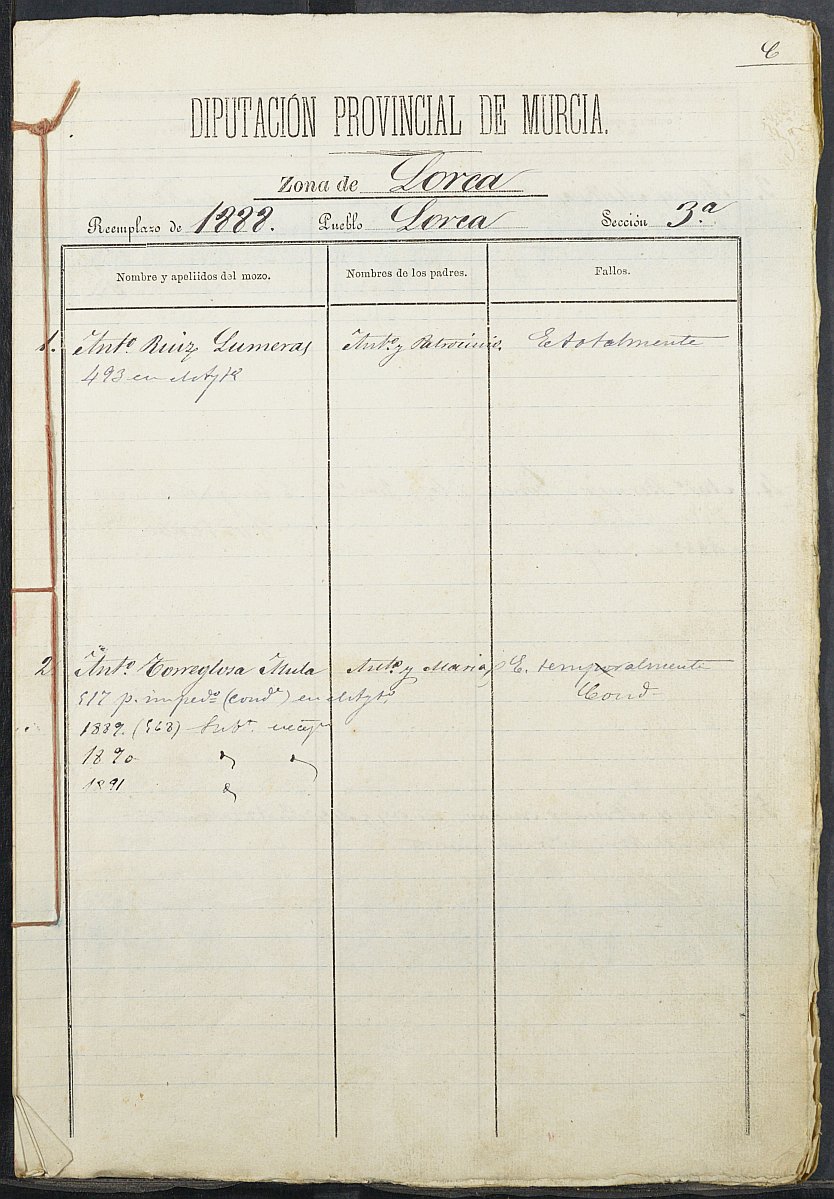 C
DIPUTACIÓN PROVINCIAL DE MURCIA.
Zona de Lorca
Reemplazo de 1888. Pueblo Lorca Sección 3.ª
Nombre y apellidos del mozo. Nombres de los padres. Fallos.
1. Antº Ruiz Lumeras Antº y Patrocinio. E. totalmente
493 en el Aytº
2. Antº Torreglosa Mula Antº y Maria E. temporalmente
Cond.
517 p. impedº (condl) en el Aytº.
1889. (568)
1890 " "
1891 "